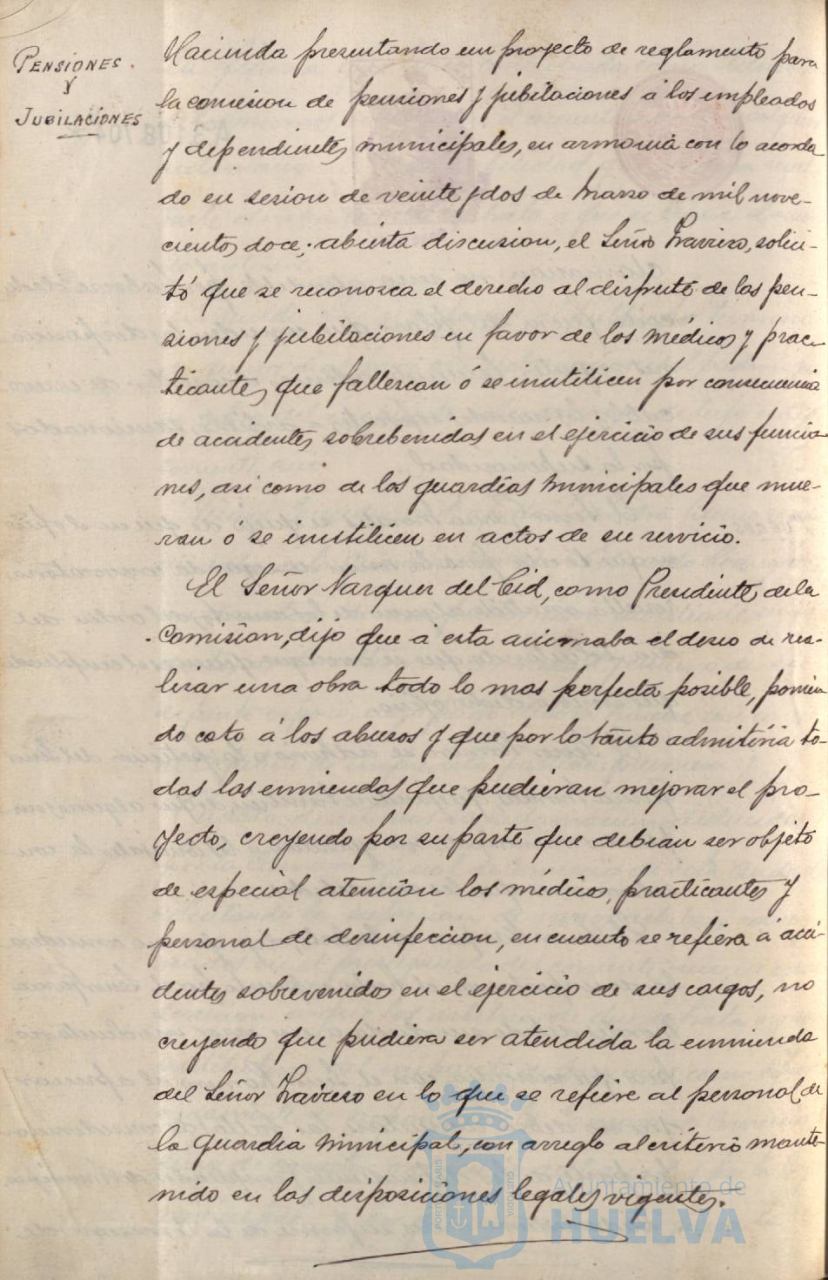 PENSIONES.
Y
JUBILACIONES
Hacienda presentando un proyecto de reglamento para
la comision de pensiones y jubilaciones á los empleados
y dependientes municipales, en armonia con lo acorda
do en sesion de veinte y dos de Marzo de mil nove-
cientos doce; abierta discusion, el Señor Travieso, solici-
tó que se reconozca el derecho al disfrute de las pen-
siones y jubilaciones en favor de los médicos y prac-
ticantes que fallezcan ó se inutilicen por consecuencia
de accidentes sobrebenidos en el ejercicio de sus funcio
nes, asi como de los guardias municipales que mue-
ran ó se inutilicen en actos de su servicio.
El Señor Vazquez del Cid, como Presidente de la
Comision, dijo que á esta animaba el deseo de rea-
lizar una obra todo lo mas perfecta posible, ponien
do coto á los abusos y que por lo tanto admitiria to-
das las enmiendas que pudieran mejorar el pro-
yecto, creyendo por su parte que debian ser objeto
de especial atencion los médicos, practicantes y
personal de desinfeccion, en cuanto se refiera á acci-
dentes sobrevenidos en el ejercicio de sus cargos, no
creyendo que pudiera ser atendida la enmienda
del Señor Travieso en lo que se refiere al personal de
la guardia municipal, con arreglo al criterio mante-
nido en las disposiciones legales vigentes.
Ayuntamiento de
HUELVA